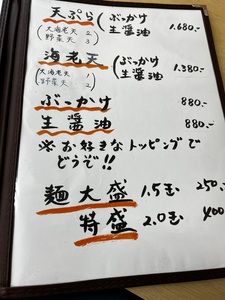 天ぷら ぶっかけ 1.680.-
(大海老天 2 野菜天 3) (生醤油
海老天 ぶっかけ 1.380.-
(大海老天 1 野菜天 2) (生醤油
ぶっかけ 880.-
生醤油 880.-
※お好きなトッピングで
どうぞ!!
麺大盛 1.5玉 250.-
特盛 2.0玉 400